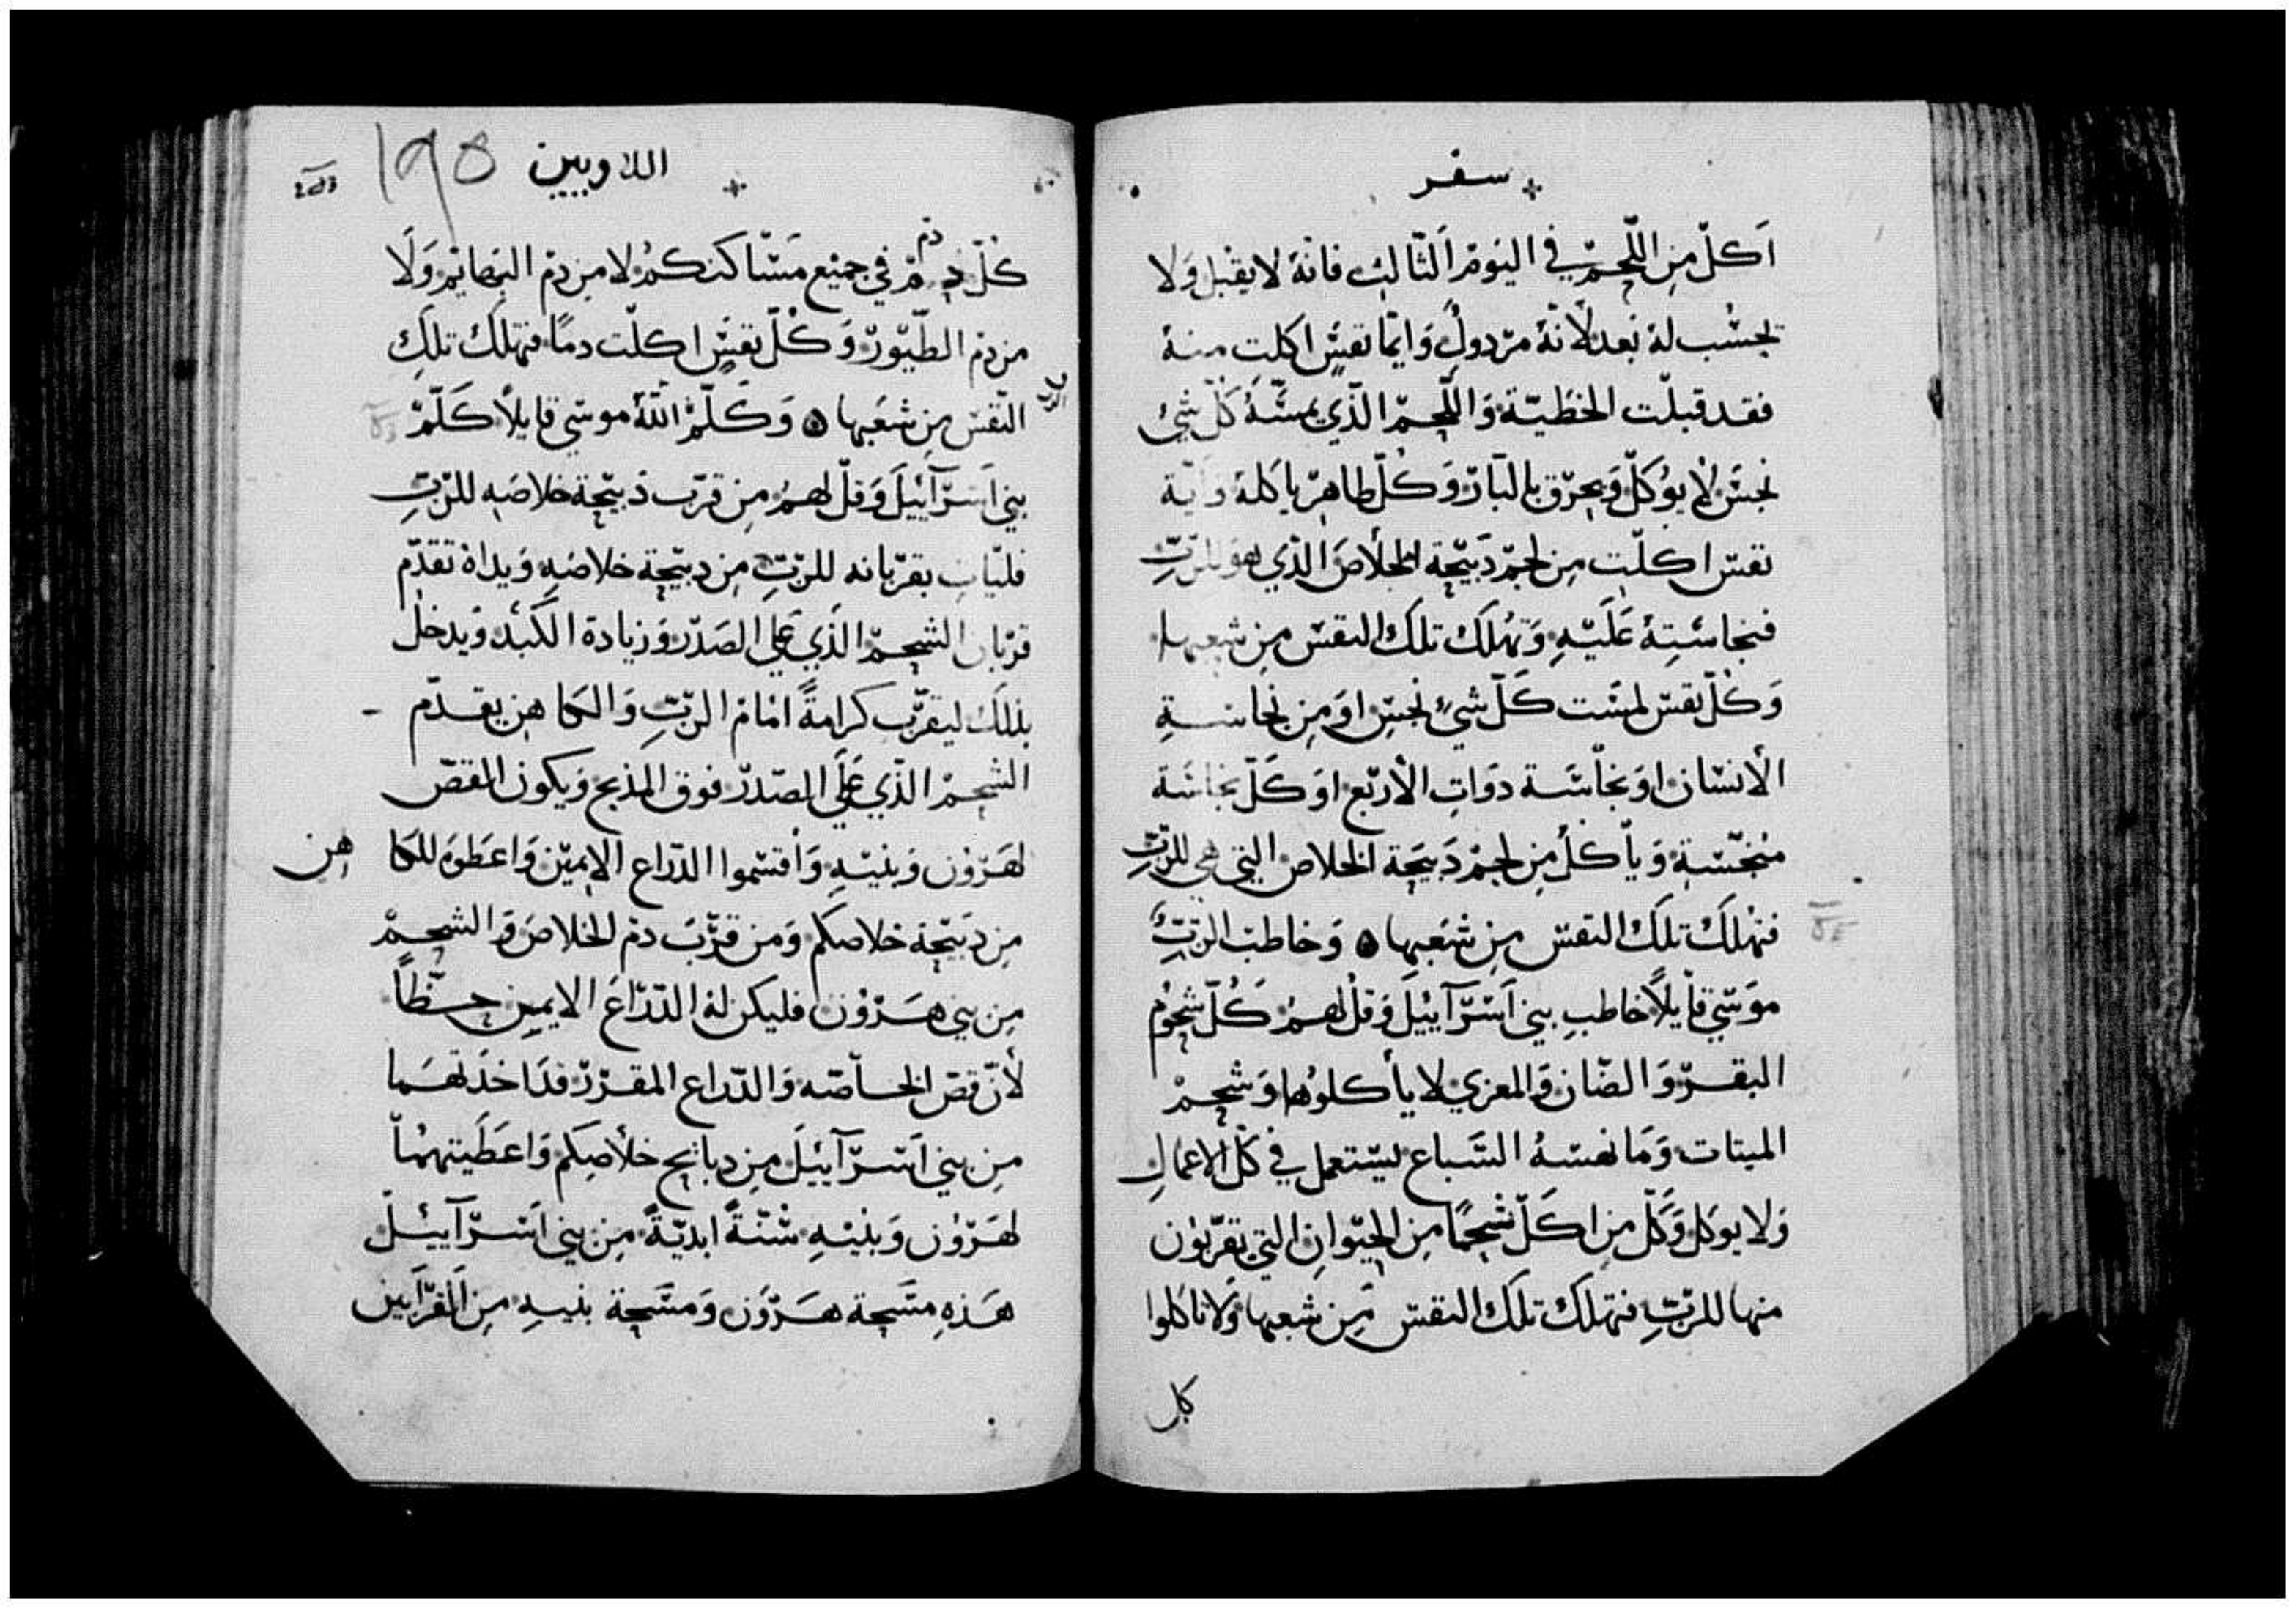 سفر
اَكلّ مِن اللّحمّ في اليَومْ اَلتّالِت فانّهُ لا يقْبل وَلا
تحسُب لهُ بَعد لأنّهُ مرّدولٌ وَايّما نفسٍّ اكلت منهُ
فقد قبلّت الخطيّة وَاللّحمّ الذّي يمسّهُ كَلّ شيْ
نجسَ لا يوُكَلّ وَيحرّق بالنّارّ وَكُلّ طاهرّ ياكلهُ وَايّة
نفسّ اكلّت مِن لحمّ دَبيّحة الخلاصَ الذّي هوَ للرّبّ
فنجاسَتِهُ عَلَيّهِ وَتهُلَك تلكَ النفسّ مِن شعبها
وَكُلّ نفسّ لمسَت كَلّ شيْءٍ نجسِّ اوَ مِن نجاسةِ
الأنسّان اوَ نجاّسَة دوَاتِ الأرّبّع اوَ كَلّ نجاسَة
منُجّسّة وَيأكلُ مِن لحمّ دَبيَحَة الخلاص التي هي للرّبِّ
فتهُلَكُ تلكَ النفسّ مِن شعَبها ۞ وَخاطبَ الرّبُّ
موَسّي قاْيلاً خاطبِ بني اَسّرّآيئيلَ وَقُل لهمُ كَُلّ شحوُم
البقرّ وَالضّان وَالمعزي لا يأكلوُها وَشحمّ
الميتات وَمَا نهسّهُ السّباع ليسّتعمل في كلّ الاعمالِ
وَلا يوكل وَكَلّ مِن اكَلّ شحمًا مِن الحيّوانِ التي يقرّبوُن
منها للرّبِّ فتهلَك تلَكَ النفسّ مِن شعبها وَلا تاكلوا
كل
اللاويين ١٩٥
كُلّ دمّ في جميْع مَسّاكنكمُ لا مِن دمّ البهايمّ وَلَا
مِن دمّ الطّيوّرّ وَكُلّ نفسٍّ اكلّت دمًا فتهلَك تلَكِ
النّفسّ مِن شعَبها ۞ وَكَلّمّ اللهُ موسّي قايلاً كَلّمّ
بني اَسّرّآيئيلَ وَقلّ لهمُ مِن قرّب دَبيّحة خلاصَهِ للرّبِّ
فليّاتِ بقرّبانه للرّبّ مِن دبيّحة خلاصَهِ وَيداهُ تقدّم
قرّبان الشحمّ الذَي عَلي الصَدرّ وَزيادة الكبَد وَيدخل
بذلكَ ليقرّب كرامةً امَام الرّبِّ وَالكاهن يقدّم
الشحمّ الذّي عَلَي الصّدرّ فوق المذبح وَيكون المقصّ
لهرّوْن وَبنيّهِ وَاقسّموا الدّراع الايميّن وَاعَطوَه للكاهن
مِن دَبيّحة خلاصكم وَمن قرّبَ دمّ الخلاصَ وَالشحمّ
مِن بني هرّوُن فليكن لهُ الدّرّاعَ الايمِن حظّاً
لأنّ قصّ الخاصّه وَالدّراع المقرّرّ قدَ اخذتهَما
مِن بني اَسّرّآيئيلَ مِن دباَيح خلأصِكم وَاعطَيتهمُاّ
لهَرّوُن وَبنيّهِ سُّنّةً ابديّةً مِن بني اَسّرّآيئيلّ
هَذهِ مسَحة هَرّوَن وَمسّحة بنيهِ مِن اَلقرّابَين